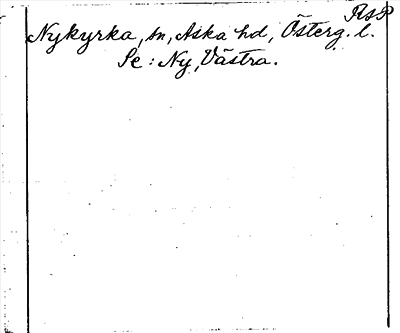 Nykyrka, sn, Aska hd, Österg. l.
Se: Ny, Västra.